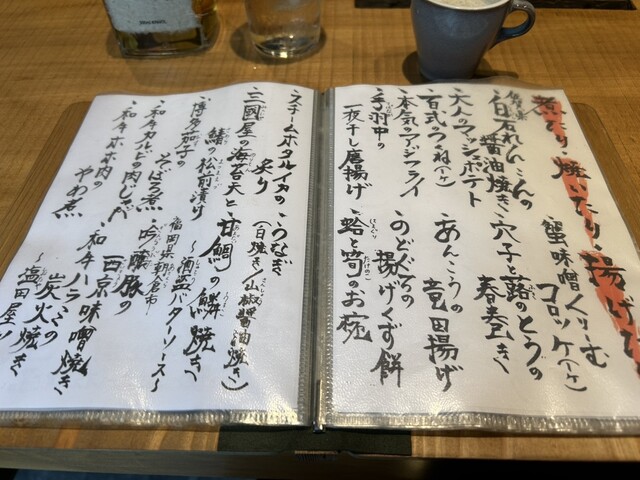 煮たり・焼いたり・揚げた
蟹味噌くりーむ
コロッケ(一ケ)
白石れんこんの
醤油焼き
穴子と蕗のとうの
春巻き
大人のマッシュポテト
百式つくね(一ケ)
あんこうの
竜田揚げ
本気のアジフライ
のどぐろの
揚げくず餅
手羽中の
一夜干し唐揚げ
蛤と筍のお椀
スチームホタルイカの
炙り
うなぎ
(白焼き/山椒醤油焼き)
三國屋の海苔天と
鰆の松前漬け
甘鯛の鱗焼き
〜酒盗バターソース〜
博多茄子の
そぼろ煮
福岡県朝倉市
吟醸豚の
西京味噌焼き
和牛カルビの肉じゃが
和牛ハラミの
炭火焼き
〜塩田屋ソ
和牛ホホ肉の
やわ煮